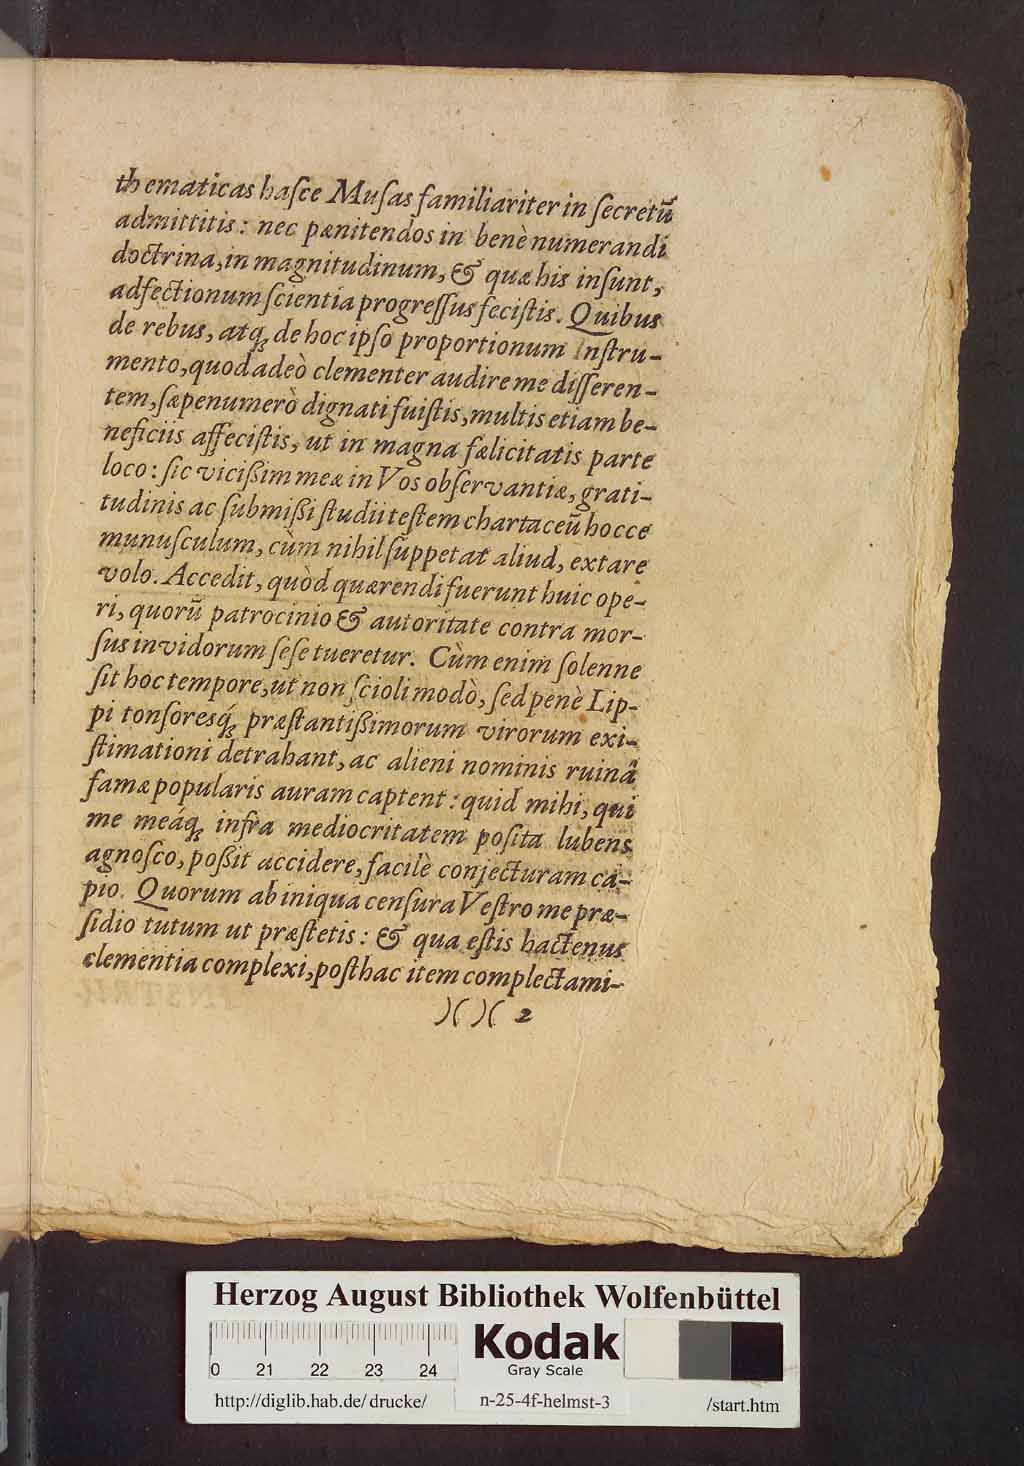 thematicas hasce Musas familiariter in secretũ
admittitis: nec pænitendos in benè numerandi
doctrina, in magnitudinum, & quæ his insunt,
adfectionum scientia progressus fecistis. Quibus
de rebus, atq; de hoc ipso proportionum Instru-
mento, quod adeò clementer audire me disseren-
tem, sæpenumerò dignati fuistis, multis etiam be-
neficiis affecistis, ut in magna fælicitatis parte
loco: sic vicißim meæ in Vos observantiæ, grati-
tudinis ac submißi studii testem chartaceũ hocce
munusculum, cùm nihil suppetat aliud, extare
volo. Accedit, quòd quærendi fuerunt huic ope-
ri, quorũ patrocinio & autoritate contra mor-
sus invidorum sese tueretur. Cùm enim solenne
sit hoc tempore, ut non scioli modò, sed penè Lip-
pi tonsoresq́; præstantißimorum virorum exi-
stimationi detrahant, ac alieni nominis ruinâ
famæ popularis auram captent: quid mihi, qui
me meaq́; infra mediocritatem posita lubens
agnosco, poßit accidere, facilè conjecturam ca-
pio. Quorum ab iniqua censura Vestro me præ-
sidio tutum ut præstetis: & qua estis hactenus
clementia complexi, posthac item complectami-
)( )( 2
Herzog August Bibliothek Wolfenbüttel
Kodak
Gray Scale
0 21 22 23 24
http://diglib.hab.de/drucke/ n-25-4f-helmst-3 /start.htm